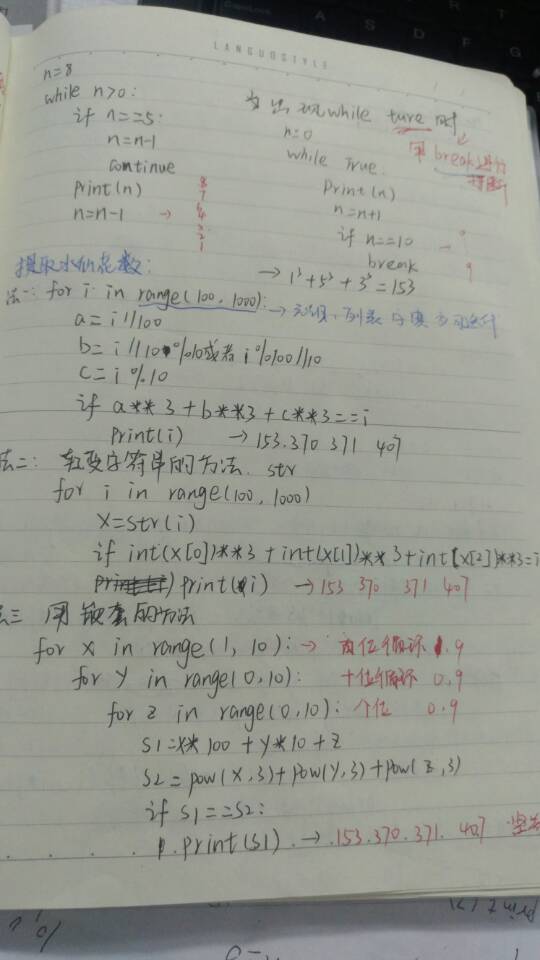 LANGUOSTYLE
n=8
while n>0:
if n==5:
n=n-1
continue
print(n)
n=n-1 →
8
7
6
4
3
2
1
当出现while ture 时
用break进行
n=0
while True:
print(n)
n=n+1
if n==10 → 0
break 9
提取水仙花数:
→ 1³+5³+3³=153
法一: for i in range(100, 1000): →
a=i//100
b=i//10%10或者i%100//10
c=i%10
if a**3+b**3+c**3==i
print(i) → 153.370 371 407
法二: 转变字符串的方法. str
for i in range(100, 1000)
x=str(i)
if int(x[0])**3+int(x[1])**3+int(x[2])**3=i
print(i) → 153 370 371 407
法三 用嵌套的方法
for x in range(1, 10): → 百位循环 1.9
for y in range(0,10): 十位循环 0.9
for z in range(0,10): 个位 0.9
S1=x*100+y*10+z
S2=pow(x,3)+pow(y,3)+pow(z,3)
if S1==S2:
print(S1) → 153.370.371.407